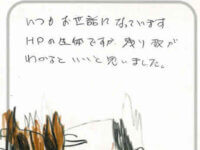 いつもお世話になっています
HPの生体ですが、残り数が
わかるといいと思いました。